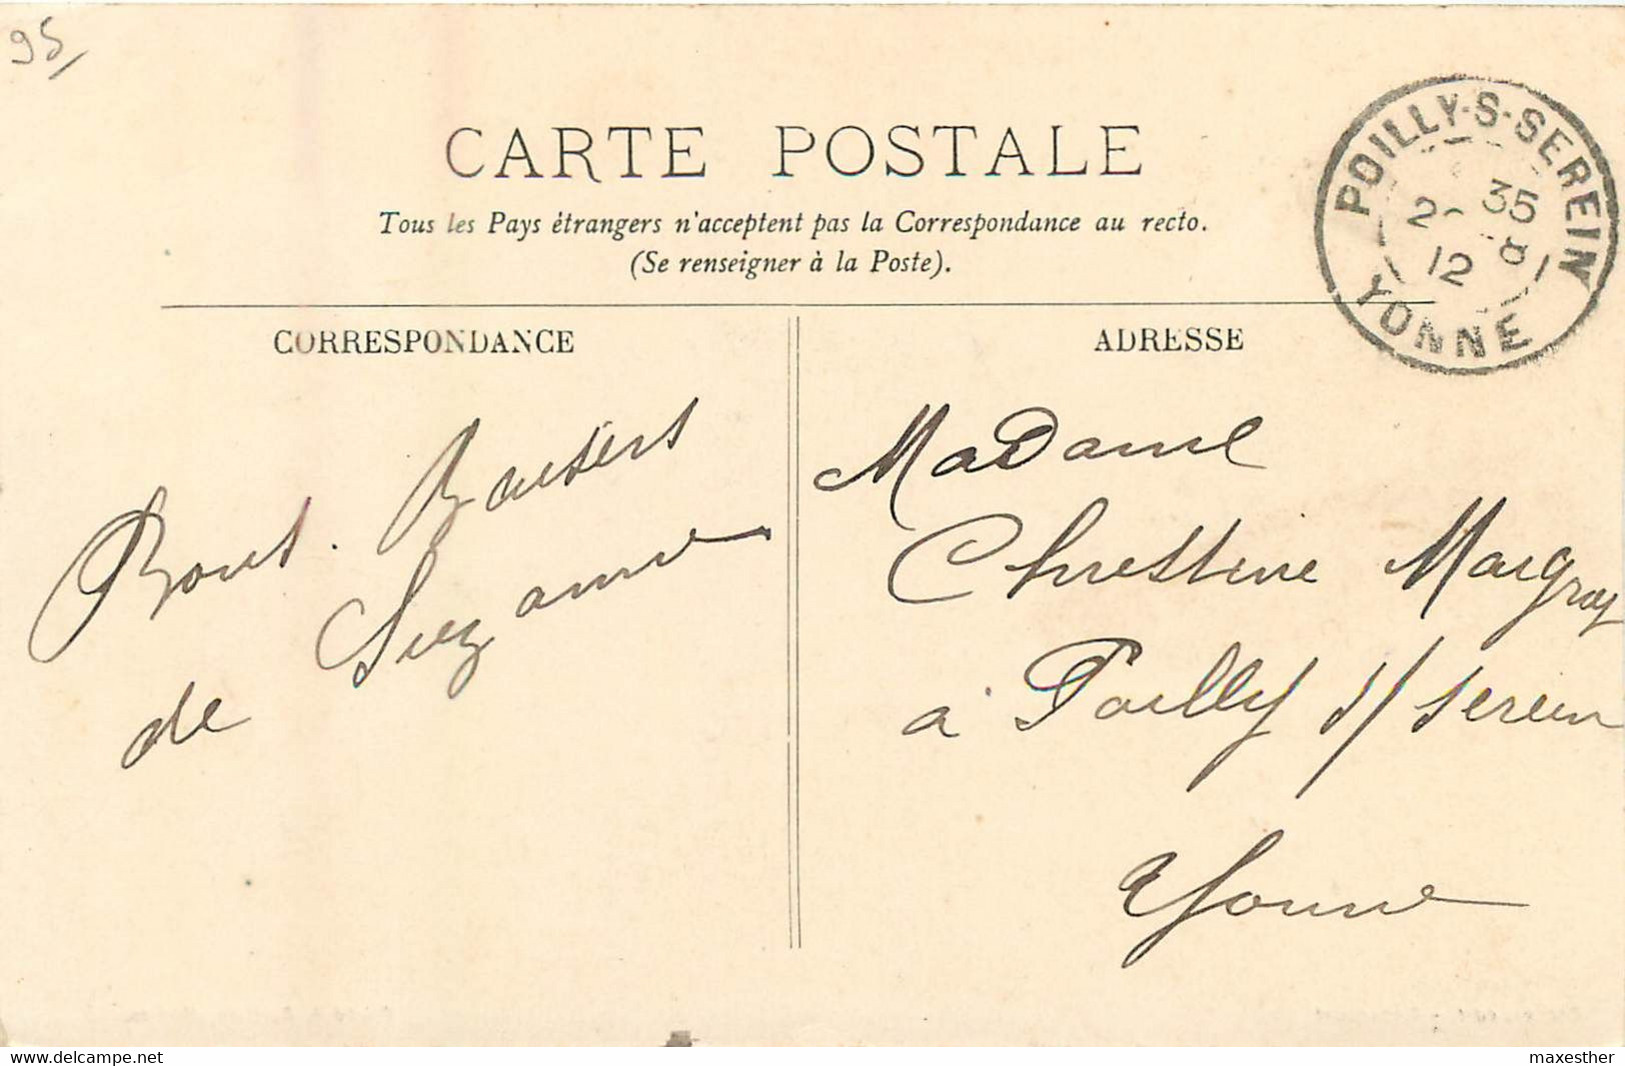 95
CARTE POSTALE
Tous les Pays étrangers n'acceptent pas la Correspondance au recto.
(Se renseigner à la Poste).
POILLY-S-SEREIN
35
12 8
YONNE
CORRESPONDANCE
ADRESSE
Bons Baisers
de Suzanne
Madame
Chrestine Maigrot
à Poilly s/ Serein
Yonne
www.delcampe.net
maxesther